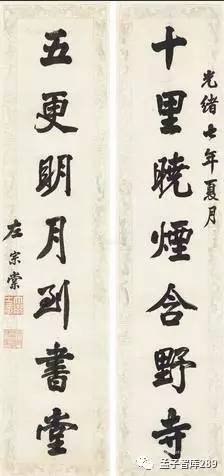 光绪七年夏月
十里晓烟含野寺
五更明月到書堂
左宗棠
孟子智库289